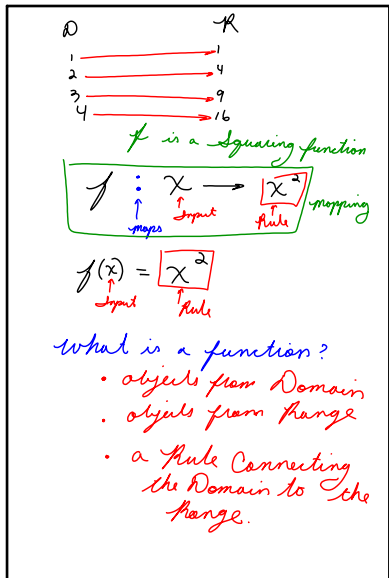 D R
1 1
2 4
3 9
4 16
f is a Squaring function
f : x → x²
maps Input Rule mapping
f(x) = x²
Input Rule
What is a function?
• objects from Domain
• objects from Range
• a Rule Connecting
the Domain to the
Range.